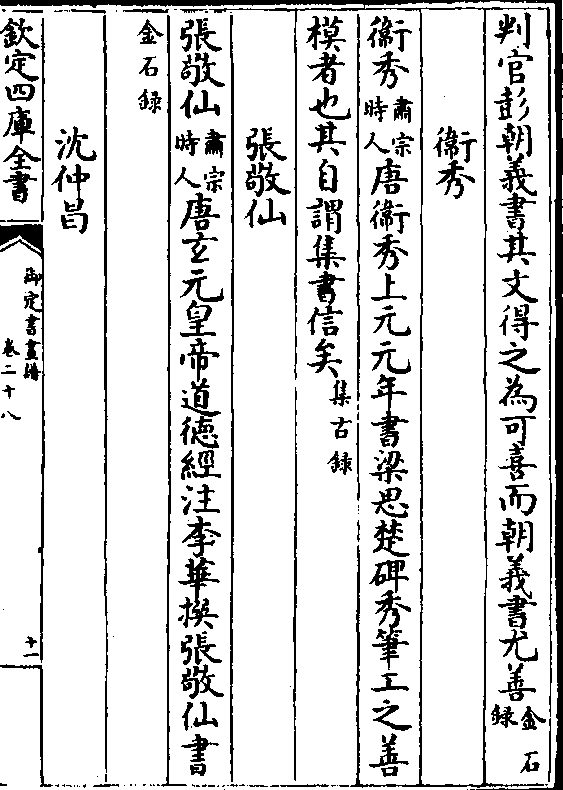 判官彭朝義書其文得之為可喜而朝義書尤善金石録
衞秀
衞秀肅宗時人唐衞秀上元元年書梁思楚碑秀筆工之善
模者也其自謂集書信矣集古録
張敬仙
張敬仙肅宗時人唐玄元皇帝道徳經注李華撰張敬仙書
金石録
沈仲昌
欽定四庫全書
御定書畫譜
卷二十八
十一